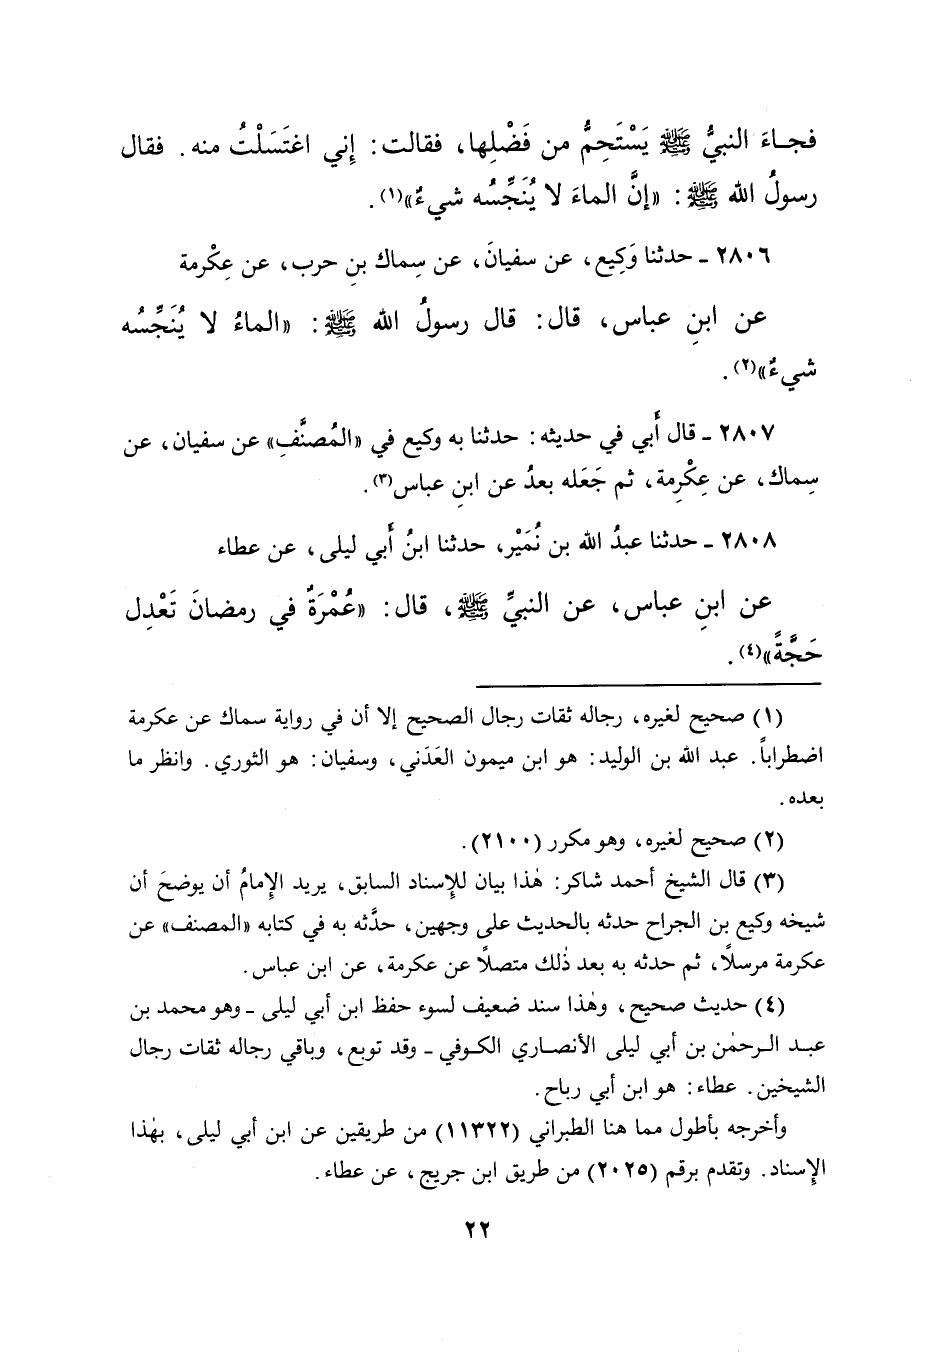 فجـاءَ النبيُّ ﷺ يَسْتَحِمُّ من فَضْلِها، فقالت: إني اغتَسَلْتُ منه. فقال
رسولُ الله ﷺ: «إنَّ الماءَ لا يُنَجِّسُه شيءٌ»(١).
٢٨٠٦ ـ حدثنا وَكِيع، عن سفيانَ، عن سِماك بنِ حرب، عن عِكْرمة
عن ابنِ عباس، قال: قال رسولُ الله ﷺ: «الماءُ لا يُنَجِّسُه
شيءٌ»(٢).
٢٨٠٧ ـ قال أَبي في حديثه: حدثنا به وكيع في «المُصنَّفِ» عن سفيان، عن
سِماك، عن عِكْرِمة، ثم جَعَله بعدُ عن ابنِ عباس(٣).
٢٨٠٨ ـ حدثنا عبدُ الله بن نُمَيْر، حدثنا ابنُ أَبي ليلى، عن عطاء
عن ابنِ عباس، عن النبيِّ ﷺ، قال: «عُمْرَةٌ في رمضانَ تَعْدِل
حَجَّةً»(٤).
(١) صحيح لغيره، رجاله ثقات رجال الصحيح إلا أن في رواية سماك عن عكرمة
اضطراباً. عبد الله بن الوليد: هو ابن ميمون العَدَني، وسفيان: هو الثوري. وانظر ما
بعده.
(٢) صحيح لغيره، وهو مكرر (٢١٠٠).
(٣) قال الشيخ أحمد شاكر: هٰذا بيان للإسناد السابق، يريد الإمامُ أن يوضحَ أن
شيخه وكيع بن الجراح حدثه بالحديث على وجهين، حدَّثه به في كتابه «المصنف» عن
عكرمة مرسلًا، ثم حدثه به بعد ذٰلك متصلًا عن عكرمة، عن ابن عباس.
(٤) حديث صحيح، وهٰذا سند ضعيف لسوء حفظ ابن أبي ليلى ـ وهو محمد بن
عبـد الـرحمٰن بن أبي ليلى الأنصـاري الكـوفي ـ وقد توبع، وباقي رجاله ثقات رجال
الشيخين. عطاء: هو ابن أبي رباح.
وأخرجه بأطول مما هنا الطبراني (١١٣٢٢) من طريقين عن ابن أبي ليلى، بهٰذا
الإسناد. وتقدم برقم (٢٠٢٥) من طريق ابن جريج، عن عطاء.
٢٢